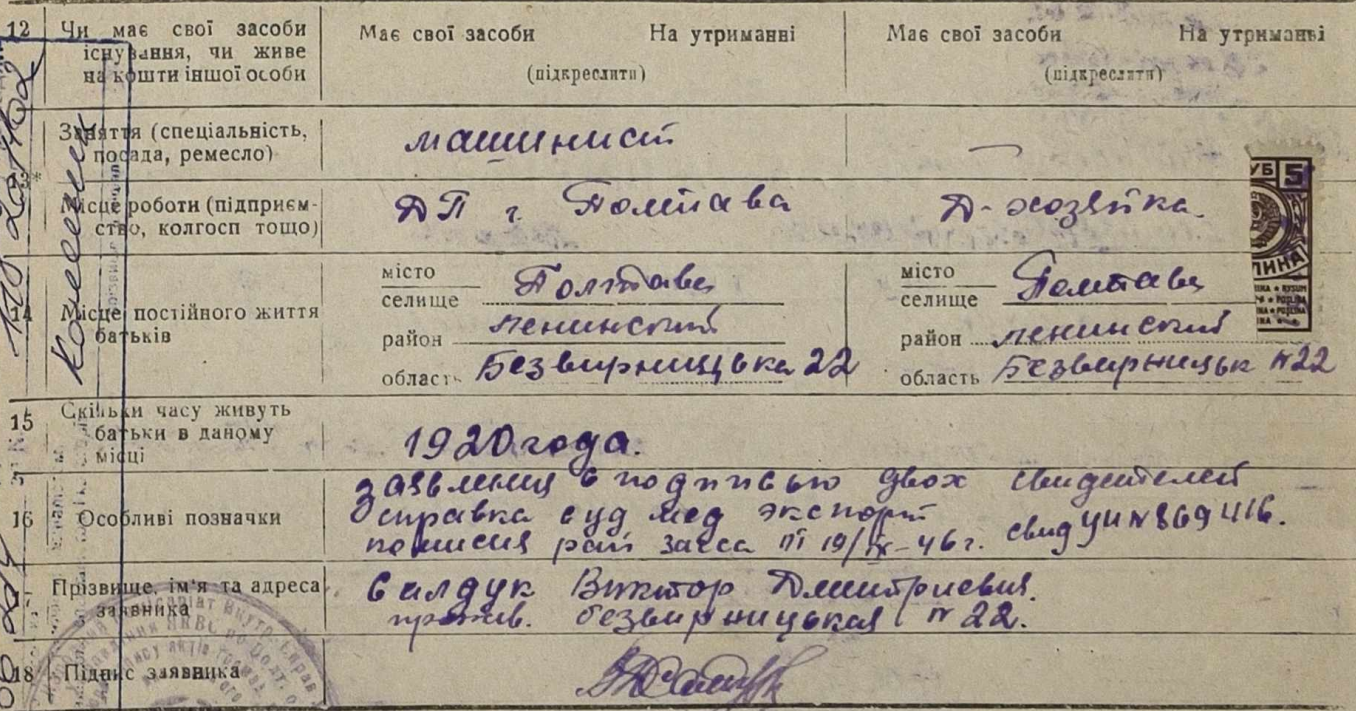 12 Чи має свої засоби існування, чи живе на кошти іншої особи
Має свої засоби На утриманні
(підкреслити)
Має свої засоби На утриманні
(підкреслити)
Заняття (спеціальність, посада, ремесло)
машинист
13*
Місце роботи (підприємство, колгосп тощо)
ДП г. Полтава
Д-хозяйка
14 Місце постійного життя батьків
місто
селище Полтава
район ленинский
область Безвирницька 22
місто
селище Полтава
район ленинский
область Безвирницьк №22
15 Скільки часу живуть батьки в даному місці
1920 года.
16 Особливі позначки
заявления с подписью двох свидетелей
справка суд мед экспорт
комисия рай загса 19/IX-46 г. свид УИ №869416.
Прізвище, ім'я та адреса заявника
Салдук Виктор Дмитриевич.
прожив. безвирницькая №22.
18 Підпис заявника
Коленик
УБ 5